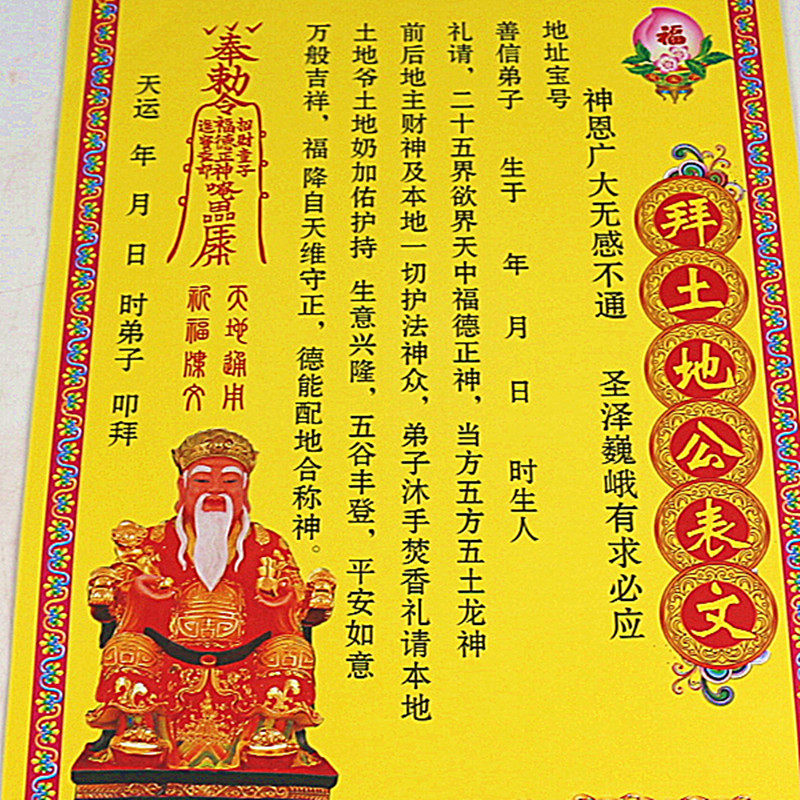 福
拜土地公表文
神恩广大无感不通 圣泽巍峨有求必应
地址宝号
善信弟子 生于 年 月 日 时生人
礼请，二十五界欲界天中福德正神，当方五方五土龙神
前后地主财神及本地一切护法神众，弟子沐手焚香礼请本地
土地爷土地奶加佑护持 生意兴隆，五谷丰登，平安如意
万般吉祥，福 降自天维守正，德能配地合称神。
奉勅令
招財童子
福德正神
進寶
天地通用
祈福牒文
天运 年 月 日 时弟子 叩拜